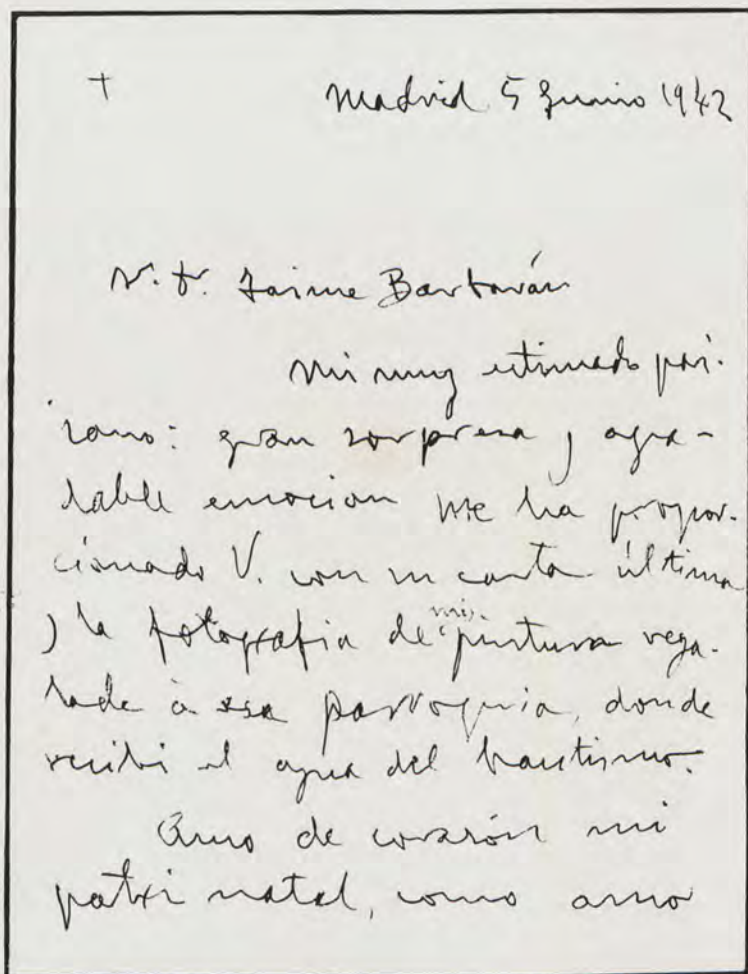 + Madrid 5 Junio 1942
S. D. Jaime Bartován
Mi muy estimado pai-
sano: gran sorpresa y agra-
dable emocion me ha propor-
cionado V. con su carta última
y la fotografia de mi pintura rega-
lade à esa parroquia, donde
recibi el agua del bautismo.
Amo de corazón mi
patri natal, como amo